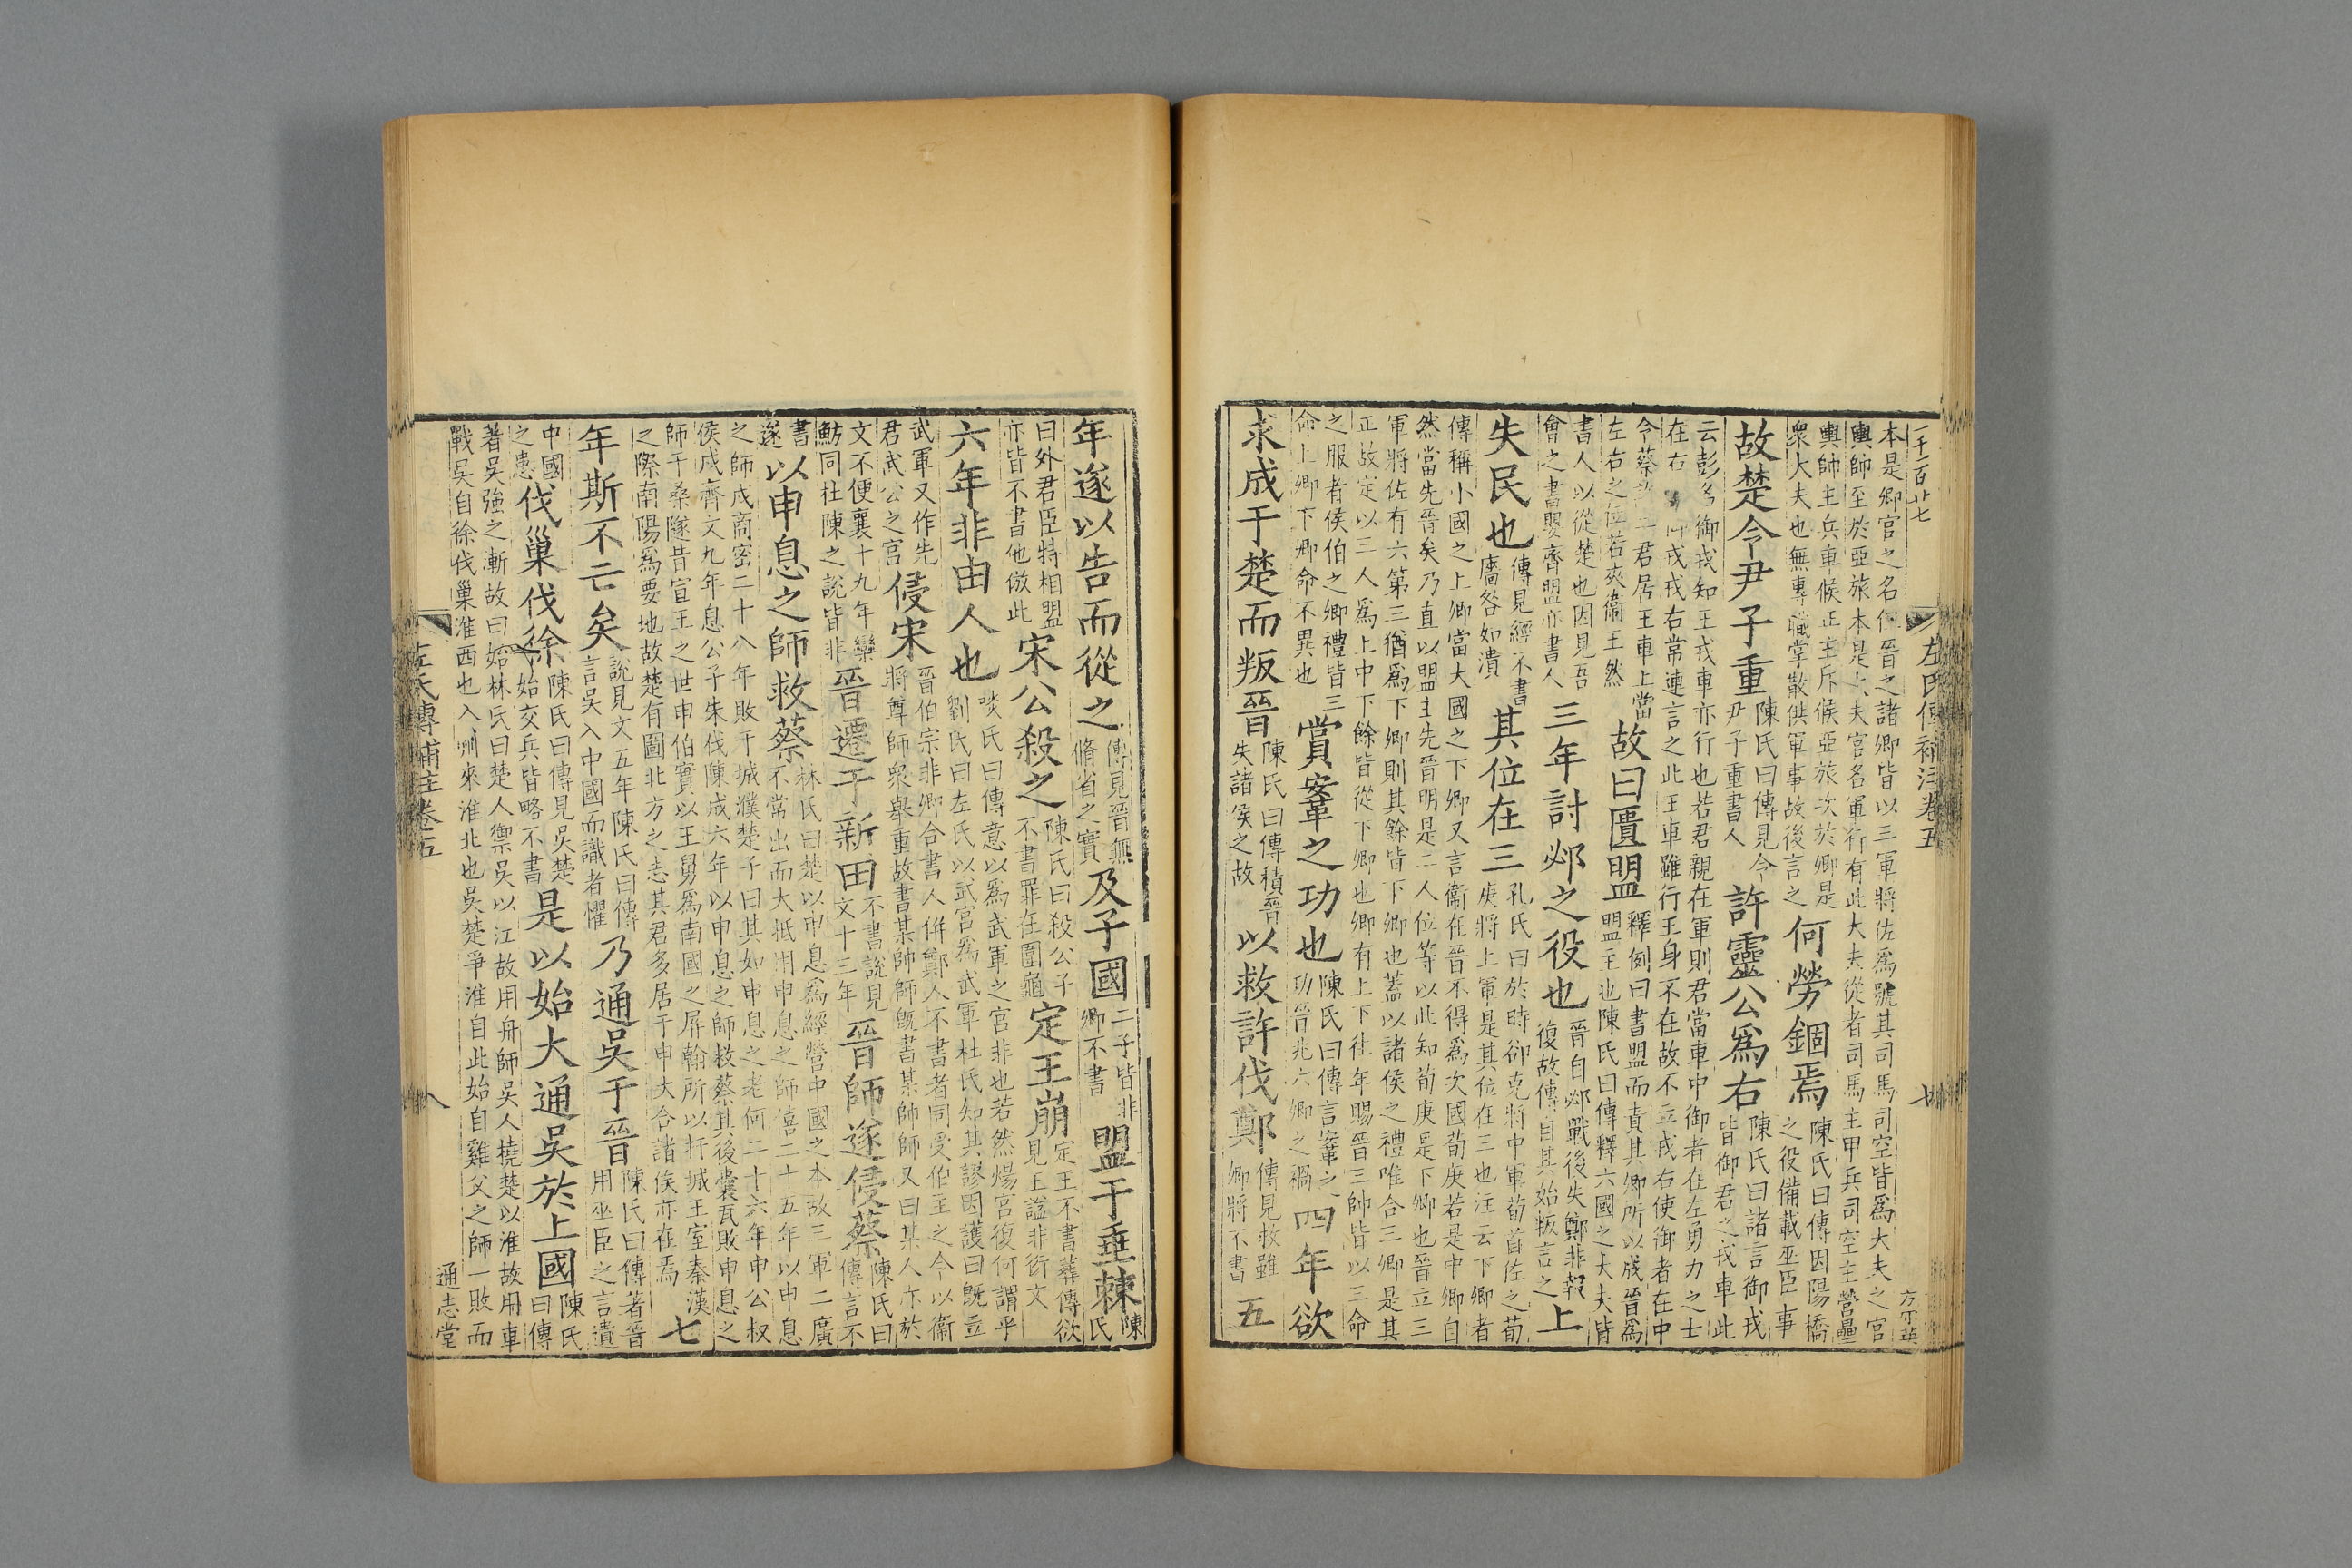 一千二百廿七
左氏傳補注卷五
七
本是卿官之名但晉之諸卿皆以三軍將佐爲號其司馬司空皆爲大夫之官
輿師至於亞旅本是大夫官名軍行有此大夫從者司馬主甲兵司空主營壘
輿帥主兵車候正主斥候亞旅次於卿是
衆大夫也無專職掌散供軍事故後言之
何勞錮焉
陳氏曰傳因陽橋
之役備載巫臣事
故楚令尹子重
陳氏曰傳見令
尹子重書人
許靈公爲右
陳氏曰諸言御戎
皆御君之戎車此
云彭名御戎知王戎車亦行也若君親在軍則君當車中御者在左勇力之士
在右戎戎右常連言之此王車雖行王身不在故不立戎右使御者在中
令蔡二君居王車上當
左右之位若夾衞王然
故曰匱盟
釋例曰書盟而責其卿所以成晉爲
盟主也陳氏曰傳釋六國之大夫皆
書人以從楚也因見吾
會之書嬰齊盟亦書人
三年討邲之役也
晉自邲戰後失鄭非報
復故傳自其始叛言之
上
失民也
傳見經不書
廧咎如潰
其位在三
孔氏曰於時郤克將中軍荀首佐之荀
庚將上軍是其位在三也注云下卿者
傳稱小國之上卿當大國之下卿又言衞在晉不得爲次國荀庚若是中卿自
然當先晉矣乃直以盟主先晉明是二人位等以此知荀庚是下卿也晉立三
軍將佐有六第三猶爲下卿則其餘皆下卿也蓋以諸侯之禮唯合三卿是其
正故定以三人爲上中下餘皆從下卿也卿有上下往年賜晉三帥皆以三命
之服者侯伯之卿禮皆三
命上卿下卿命不異也
賞鞌之功也
陳氏曰傳言鞌之
功晉兆六卿之禍
四年欲
求成于楚而叛晉
陳氏曰傳積晉
失諸侯之故
以救許伐鄭
傳見救雖
卿將不書
五
年遂以告而從之
傳見晉無
脩省之實
及子國
二子皆非
卿不書
盟于垂棘
陳
氏
曰外君臣特相盟
亦皆不書他倣此
宋公殺之
陳氏曰殺公子
不書罪在圍龜
定王崩
定王不書葬傳欲
見王謚非衍文
六年非由人也
啖氏曰傳意以爲武軍之宮非也若然煬宮復何謂乎
劉氏曰左氏以武宮爲武軍杜氏知其謬因護曰旣立
武軍又作先
君武公之宮
侵宋
晉伯宗非卿合書人併鄭人不書者同受伯主之令以衞
將尊師衆舉重故書某師師旣書某帥師又曰某人亦於
文不便襄十九年欒
魴同杜陳之說皆非
晉遷于新田
不書說見
文十三年
晉師遂侵蔡
陳氏曰
傳言不
書
遂
以申息之師救蔡
林氏曰楚以申息爲經營中國之本故三軍二廣
不常出而大抵用申息之師僖二十五年以申息
之師戍商密二十八年敗于城濮楚子曰其如申息之老何二十六年申公叔
侯戍齊文九年息公子朱伐陳成六年以申息之師救蔡其後囊瓦敗申息之
師于桑隧昔宣王之世申伯實以王舅爲南國之屏翰所以扞城王室秦漢
之際南陽爲要地故楚有圖北方之志其君多居于申大合諸侯亦在焉
七
年斯不亡矣
說見文五年陳氏曰傳
言吳入中國而識者懼
乃通吳于晉
陳氏曰傳著晉
用巫臣之言遺
中國
之患
伐巢伐徐
陳氏曰傳見吳楚
始交兵皆略不書
是以始大通吳於上國
陳氏
曰傳
著吳強之漸故曰始林氏曰楚人禦吳以江故用舟師吳人橈楚以淮故用車
戰吳自徐伐巢淮西也入州來淮北也吳楚爭淮自此始自雞父之師一敗而
左氏傳補注卷五
八
通志堂